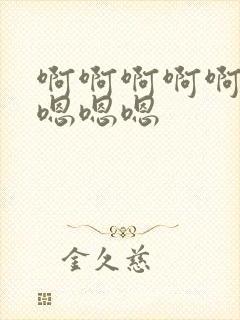 啊啊啊啊啊
嗯嗯嗯
金久慈